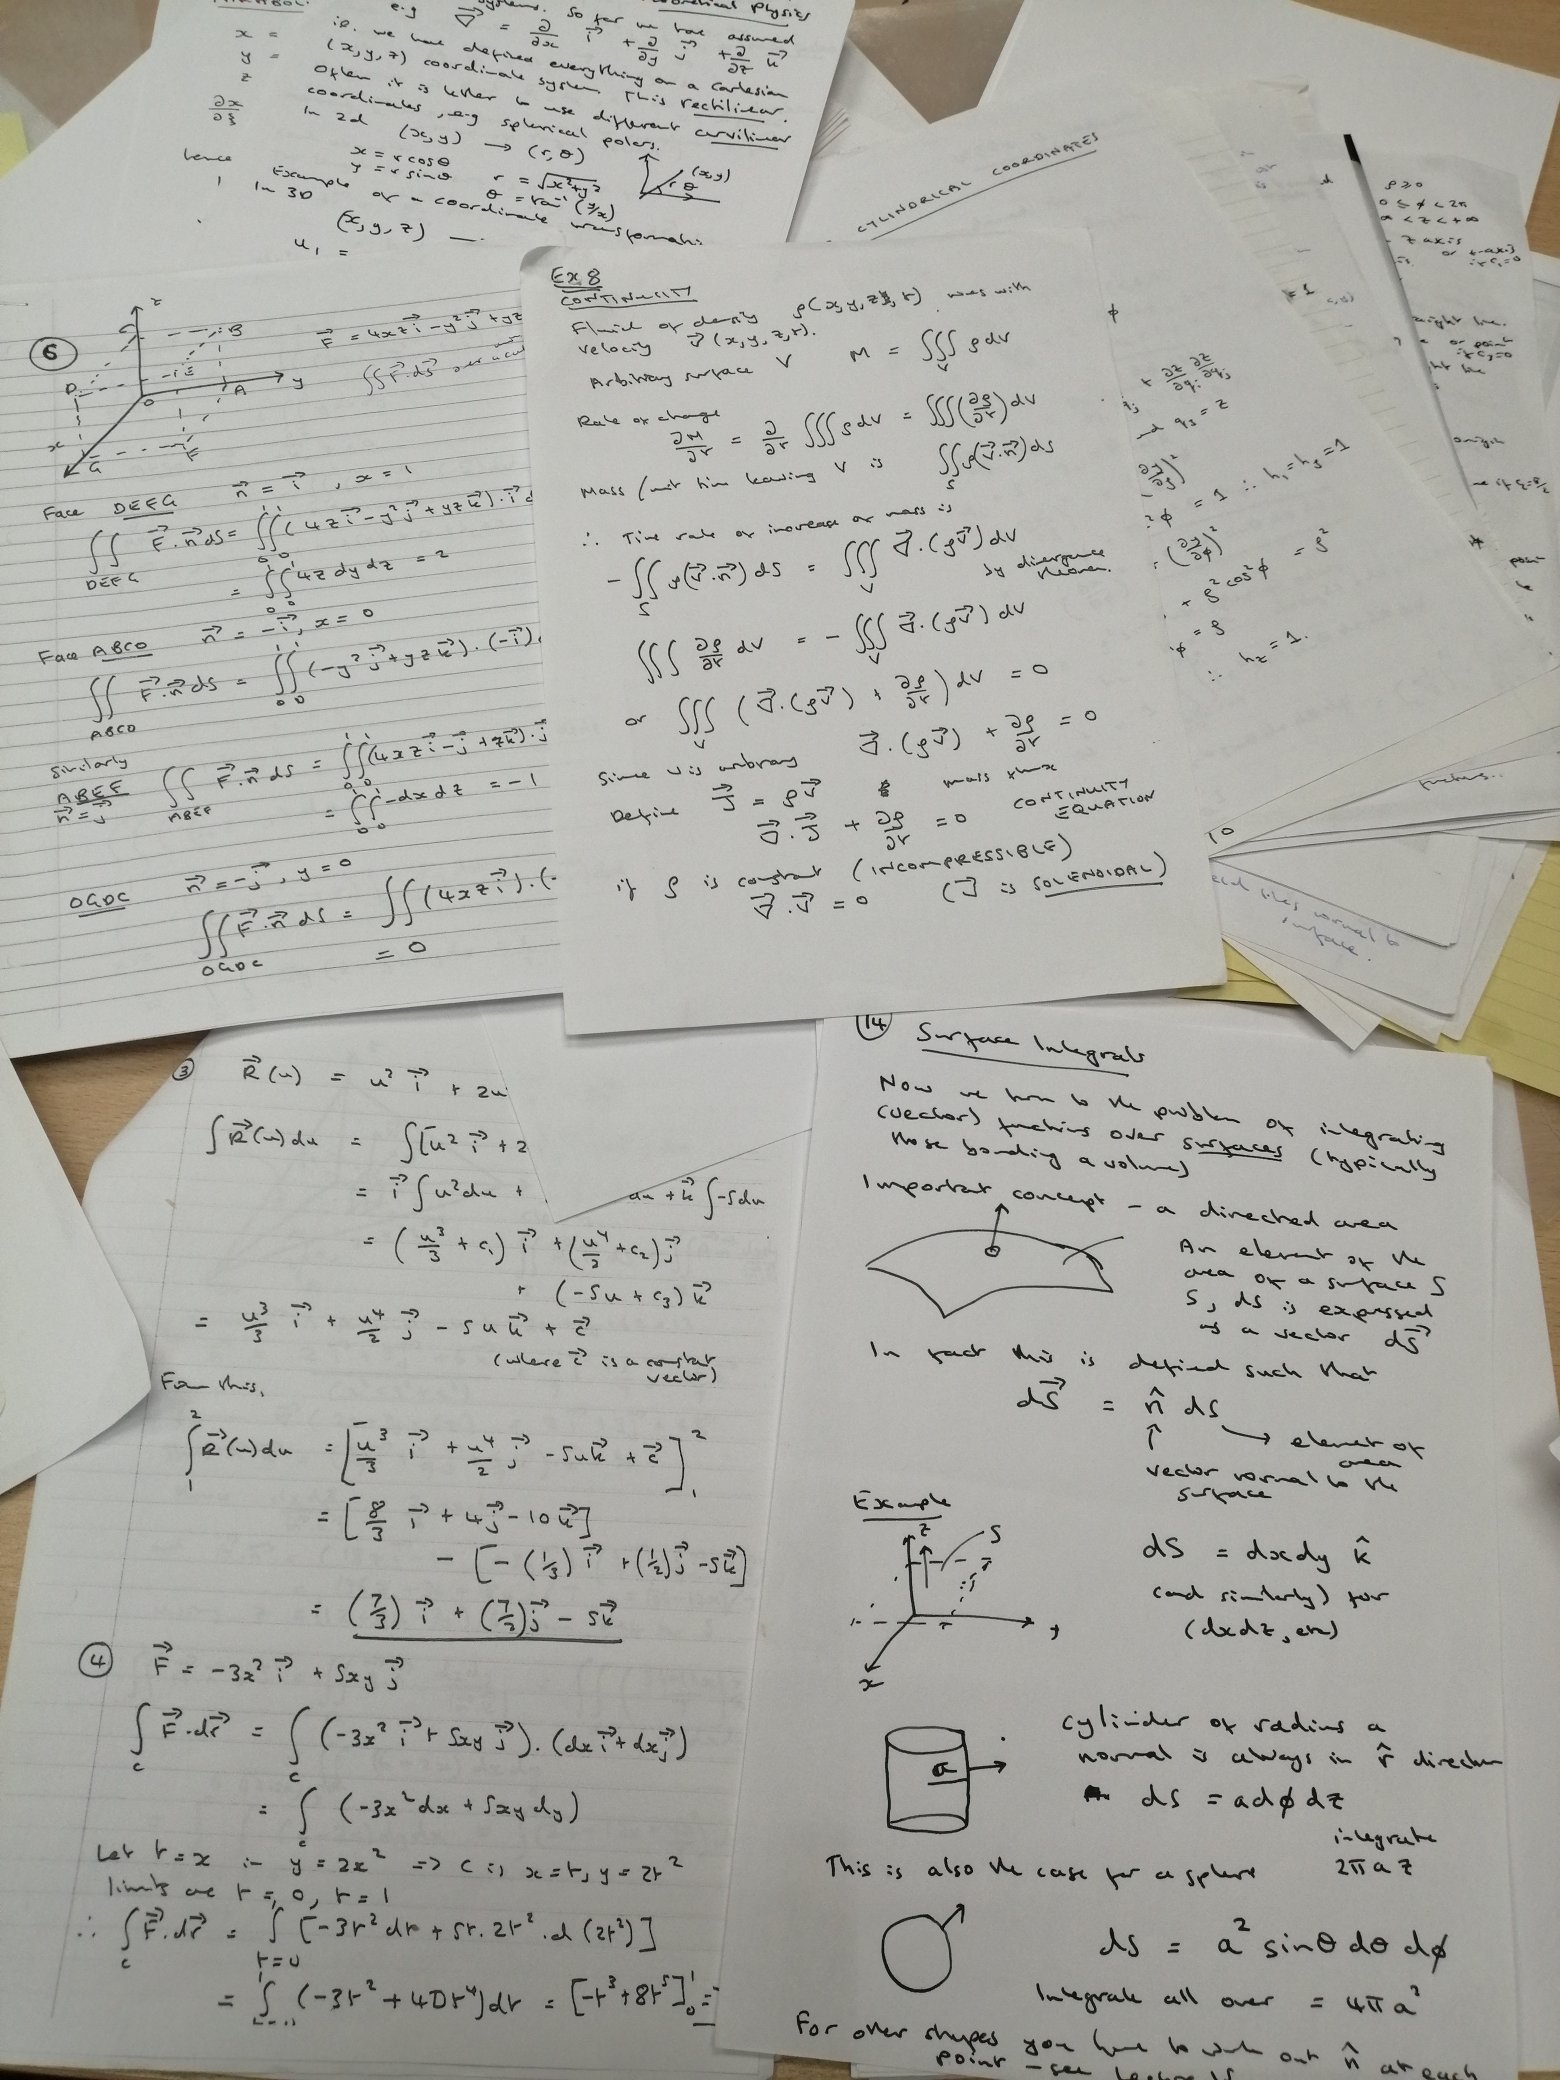 e.g systems. So far we have assumed
∇⃗ = ∂/∂x i⃗ + ∂/∂y j⃗ + ∂/∂z k⃗
i.e. we have defined everything on a cartesian
(x,y,z) coordinate system. This rectilinear.
Often it is better to use different curvilinear
coordinates, e.g spherical polars.
In 2d (x,y) → (r,θ)
x = r cosθ
y = r sinθ
r = √x²+y²
θ = tan⁻¹(y/x)
(x,y)
r θ
Example of a coordinate transformation
In 3D
(x,y,z) —
u₁ =
x =
y =
z
∂x/∂ξ
hence
CYLINDRICAL COORDINATES
ρ≥0
0 ≤ φ < 2π
∞ < z < +∞
z axis
⑥
z
C B
D E
O A y
x G F
F⃗ = 4xz i⃗ - y² j⃗ + yz
∬ F⃗.dS⃗
Face DEFG n⃗ = i⃗, x = 1
∬ F⃗.n⃗ dS = ∫₀¹∫₀¹ (4z i⃗ - y² j⃗ + yz k⃗).i⃗ d
DEFG
= ∫₀¹∫₀¹ 4z dy dz = 2
Face ABCO n⃗ = -i⃗, x = 0
∬ F⃗.n⃗ dS = ∫₀¹∫₀¹ (-y² j⃗ + yz k⃗).(-i⃗)
ABCO
Similarly
ABEF n⃗ = j⃗ ∬ F⃗.n⃗ dS = ∫₀¹∫₀¹ (4xz i⃗ - j⃗ + z k⃗).j
ABEF
= ∫₀¹∫₀¹ -dx dz = -1
OGDC n⃗ = -j⃗, y = 0
∬ F⃗.n⃗ dS = ∬ (4xz i⃗).(-
OGDC
= 0
Ex 8
CONTINUITY
Fluid of density ρ(x,y,z,t) moves with
velocity v⃗(x,y,z,t).
Arbitrary surface V M = ∭ ρ dV
V
Rate of change
∂M/∂t = ∂/∂t ∭ ρ dV = ∭ (∂ρ/∂t) dV
Mass/unit time leaving V is ∬ ρ(v⃗.n⃗) dS
S
∴ Time rate of increase of mass is
- ∬ ρ(v⃗.n⃗) dS = ∭ ∇⃗.(ρv⃗) dV
S V
by divergence
theorem.
∭ ∂ρ/∂t dV = - ∭ ∇⃗.(ρv⃗) dV
V
or ∭ (∇⃗.(ρv⃗) + ∂ρ/∂t) dV = 0
V
Since V is arbitrary ∇⃗.(ρv⃗) + ∂ρ/∂t = 0
Define J⃗ = ρv⃗ mass flux
∇⃗.J⃗ + ∂ρ/∂t = 0 CONTINUITY
EQUATION
if ρ is constant (INCOMPRESSIBLE)
∇⃗.v⃗ = 0 (J⃗ is SOLENOIDAL)
+ ∂z/∂qᵢ ∂z/∂qⱼ
q₃ = z
φ = 1 ∴ h₁ = h₃ = 1
(∂y/∂φ)²
+ ρ² cos²φ = ρ²
φ = ρ
∴ h₂ = 1.
10
③ R⃗(u) = u² i⃗ + 2u
∫ R⃗(u) du = ∫ [u² i⃗ + 2
= i⃗ ∫ u² du + du + k⃗ ∫ -5 du
= (u³/3 + c₁) i⃗ + (u⁴/2 + c₂) j⃗
+ (-5u + c₃) k⃗
= u³/3 i⃗ + u⁴/2 j⃗ - 5u k⃗ + c⃗
(where c⃗ is a constant
vector)
From this,
∫₁² R⃗(u) du = [u³/3 i⃗ + u⁴/2 j⃗ - 5u k⃗ + c⃗]₁²
= [8/3 i⃗ + 4 j⃗ - 10 k⃗]
- [-(1/3) i⃗ + (1/2) j⃗ - 5 k⃗]
= (7/3) i⃗ + (7/2) j⃗ - 5 k⃗
④ F⃗ = -3x² i⃗ + 5xy j⃗
∫ F⃗.dr⃗ = ∫ (-3x² i⃗ + 5xy j⃗).(dx i⃗ + dx j⃗)
c c
= ∫ (-3x² dx + 5xy dy)
c
Let t = x in y = 2x² => C is x = t, y = 2t²
limits are t = 0, t = 1
∴ ∫ F⃗.dr⃗ = ∫ [-3t² dt + 5t.2t².d(2t²)]
c t=0
= ∫ (-3t² + 40t⁴) dt = [-t³ + 8t⁵]₀¹ =
⑭ Surface Integrals
Now we turn to the problem of integrating
(vector) functions over surfaces (typically
those bonding a volume)
Important concept – a directed area
An element of the
area of a surface S
S, dS is expressed
as a vector dS⃗
In fact this is defined such that
dS⃗ = n̂ dS
↑ → element of
area
vector normal to the
surface
Example
z S
y
x
dS = dx dy k̂
(and similarly) for
(dxdz, etc)
a
cylinder of radius a
normal is always in r̂ direction
dS = a dφ dz
integrate
2πaz
This is also the case for a sphere
dS = a² sinθ dθ dφ
Integrate all over = 4πa²
For other shapes you have to work out n̂ at each
point – see